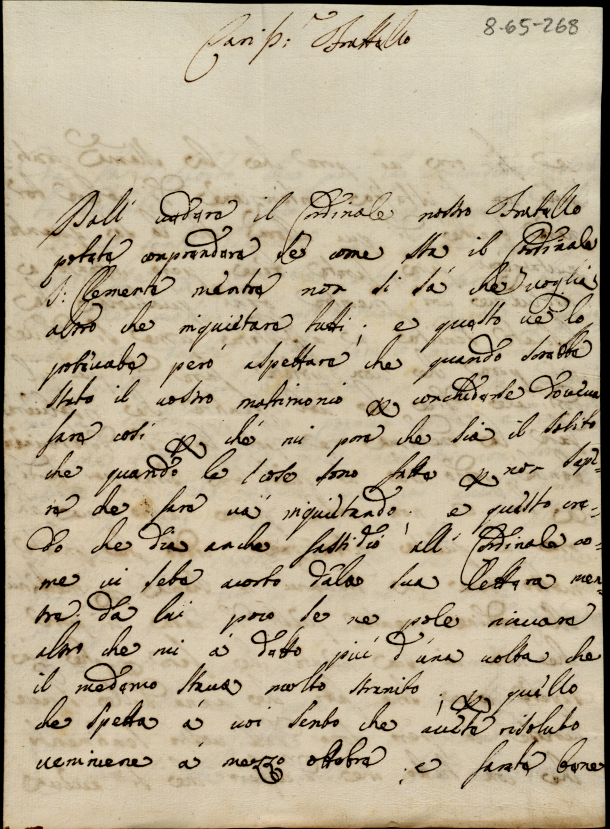 8-65-268
Cariss.mo Fratello
Dall' vedere il Cardinale nostro Fratello
potete comprendere se come sta il Cardinale
S: Clemente mentre non si sà che voglia
altro che inquietare tutti; e questo ve lo
potevate però aspettare che quando sarebbe
stato il vostro matrimonio p conchiuderse doveva
fare così p chè mi pare che sia il solito
che quando le cose sono fatte p non sape-
re che fare và inquietando: e questo cre-
do che dia anche fastidio all' Cardinale co-
me vi sete acorto dala sua lettera men-
tre da lui poco se ne pole ricavare
altro che mi à detto più d'una volta che
il medemo stava molto stranito; p quello
che spetta à voi sento che avete risoluto
venirvene à mezzo ottobre; e farete bene